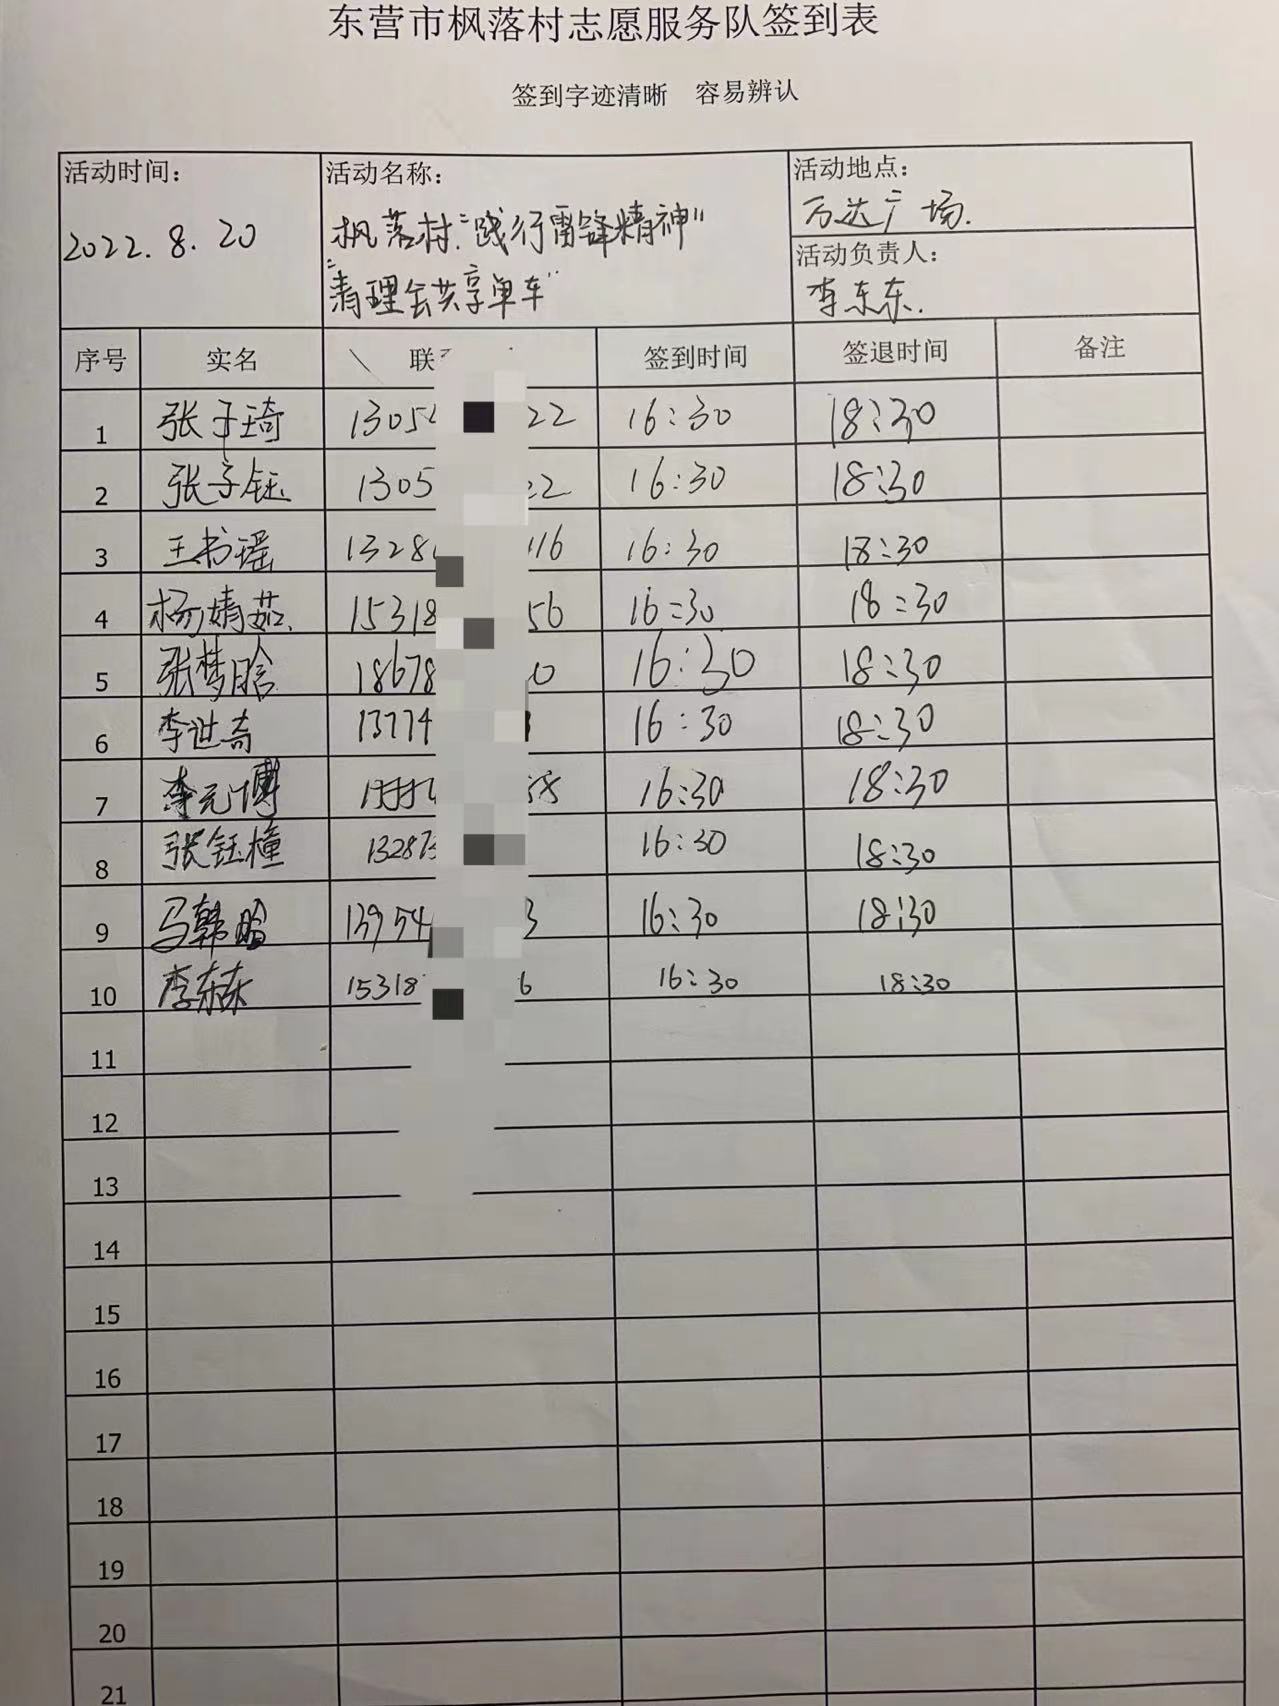 东营市枫落村志愿服务队签到表
签到字迹清晰 容易辨认
活动时间：
2022.8.20
活动名称：
枫落村"践行雷锋精神"
"清理会共享单车"
活动地点：
万达广场.
活动负责人：
李东东.
序号 实名 联 签到时间 签退时间 备注
1 张子琦 1305 22 16:30 18:30
2 张子钰 1305 22 16:30 18:30
3 王书瑶 1328 116 16:30 18:30
4 杨婧茹. 15318 56 16:30 18:30
5 张梦晗 18678 0 16:30 18:30
6 李世奇 13774 16:30 18:30
7 李元博 58 16:30 18:30
8 张钰橦 13287 16:30 18:30
9 马韩晗 13954 3 16:30 18:30
10 李东东 15318 6 16:30 18:30
11
12
13
14
15
16
17
18
19
20
21